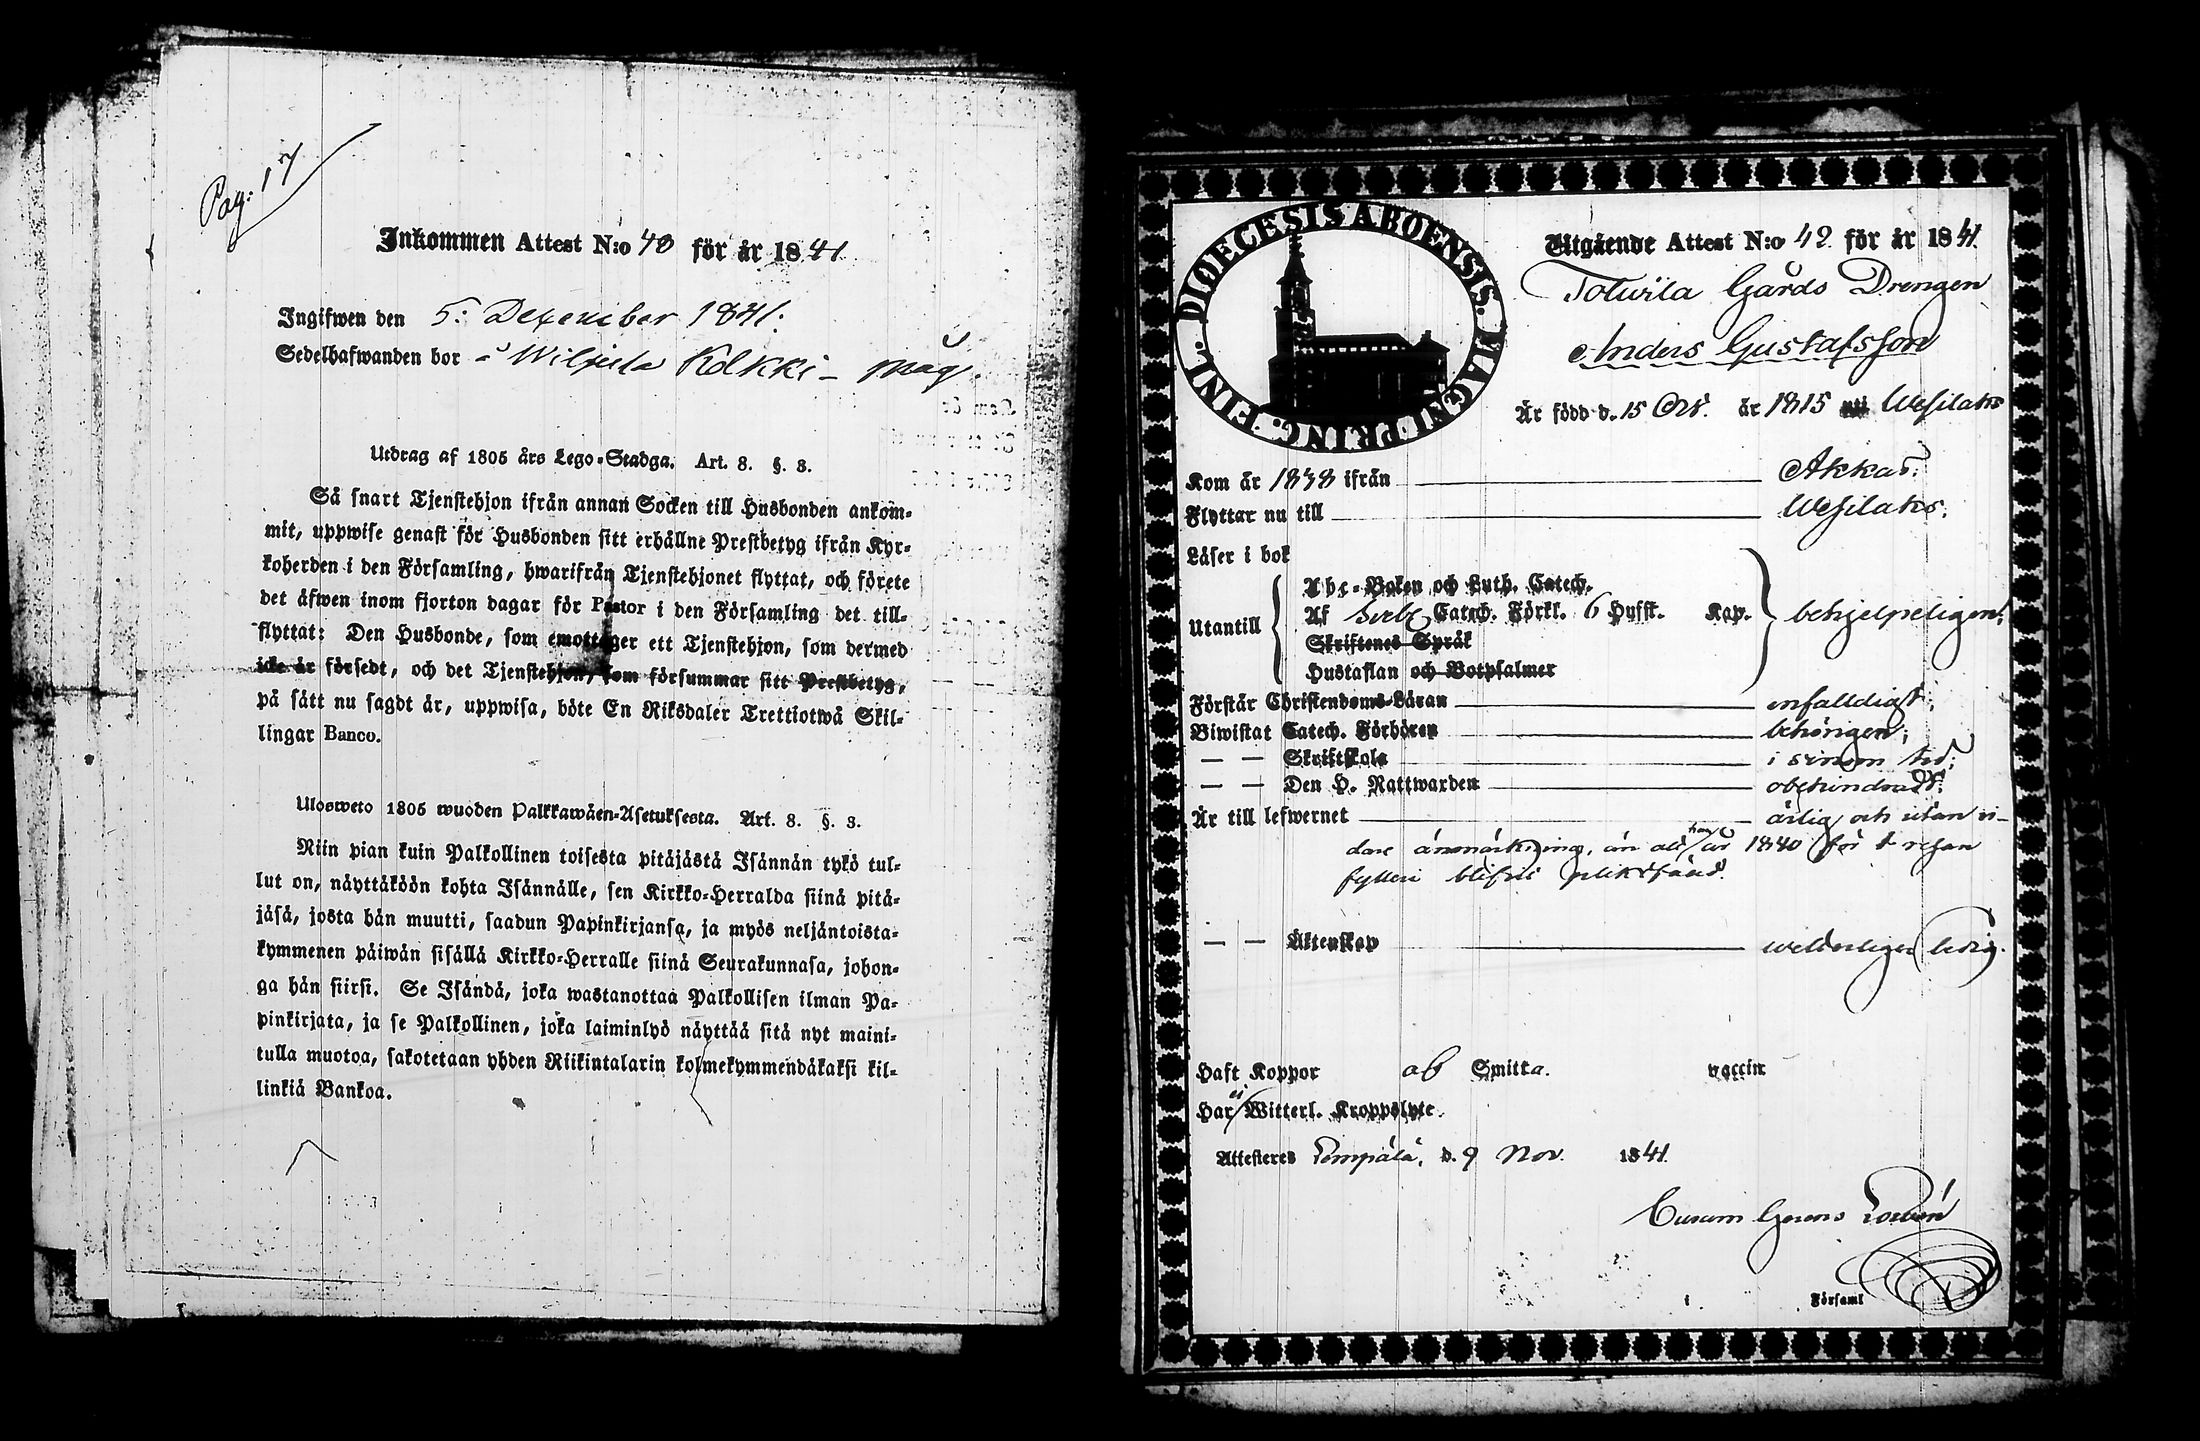 Pag. 17
Inkommen Attest N:o 40 för år 1841
Ingifwen den 5: December 1841.
Sedelhafwanden bor å Kolkki - måg.
Utdrag af 1805 års Lego-Stadga. Art. 8. §. 3.
Så snart Tjenstehjon ifrån annan Socken till Husbonden ankom-
mit, uppwise genast för Husbonden sitt erhållne Prestbetyg ifrån Kyr-
koherden i den Församling, hwarifrån Tjenstehjonet flyttat, och förete
det äfwen inom fjorton dagar för Pastor i den Församling det till-
flyttat: Den Husbonde, som emottager ett Tjenstehjon, som dermed
icke är försedt, och det Tjenstehjon, som försummar sitt Prestbetyg,
på sätt nu sagdt är, uppwisa, böte En Riksdaler Trettiotwå Skil-
lingar Banco.
Ulosweto 1805 wuoden Palkkawäen-Asetuksesta. Art. 8. §. 3.
Niin pian kuin Palkollinen toisesta pitäjästä Isännän tykö tul-
lut on, näyttäköön kohta Isännälle, sen Kirkko-Herralda siinä pitä-
jäsä, josta hän muutti, saadun Papinkirjansa, ja myös neljäntoista-
kymmenen päiwän sisällä Kirkko-Herralle siinä Seurakunnasa, johon-
ga hän siirsi. Se Isändä, joka wastanottaa Palkollisen ilman Pa-
pinkirjata, ja se Palkollinen, joka laiminlyö näyttää sitä nyt maini-
tulla muotoa, sakotetaan yhden Riikintalarin kolmekymmendäkaksi kil-
linkiä Bankoa.
DIOECESIS ABOENSIS. MAGNI PRINC. FINL.
Utgående Attest N:o 42 för år 1841.
Totwila Gårds Drengen
Anders Gustafsson
Är född d. 15 Oct. år 1815 uti Wesilaks
Kom år 1838 ifrån Akkas.
Flyttar nu till Wesilaks.
Läser i bok
Abc-Boken och Luth. Catech.
Utantill Af Svebel. Catech. Förkl. 6 Hufst. Kap. behjelpeligen;
Skriftenes Språk
Hustaflan och Botpsalmer
Förstår Christendoms-Läran enfalldigt;
Biwistat Catech. Förhören behörigen;
— — Skriftskola i sinom tid;
— — Den H. Nattwarden obehindradt.
Är till lefwernet ärlig och utan vi-
dare anmärkning, än att han år 1840 för 1 resan
fylleri blifvit pliktfäld.
— — Äktenskap wetterligen ledig.
Haft Koppor af Smitta. vaccin
Har ei Witterl. Kroppslyte.
Attesteras Lempälä, d. 9 Nov. 1841.
Curam Gerens
i Församl